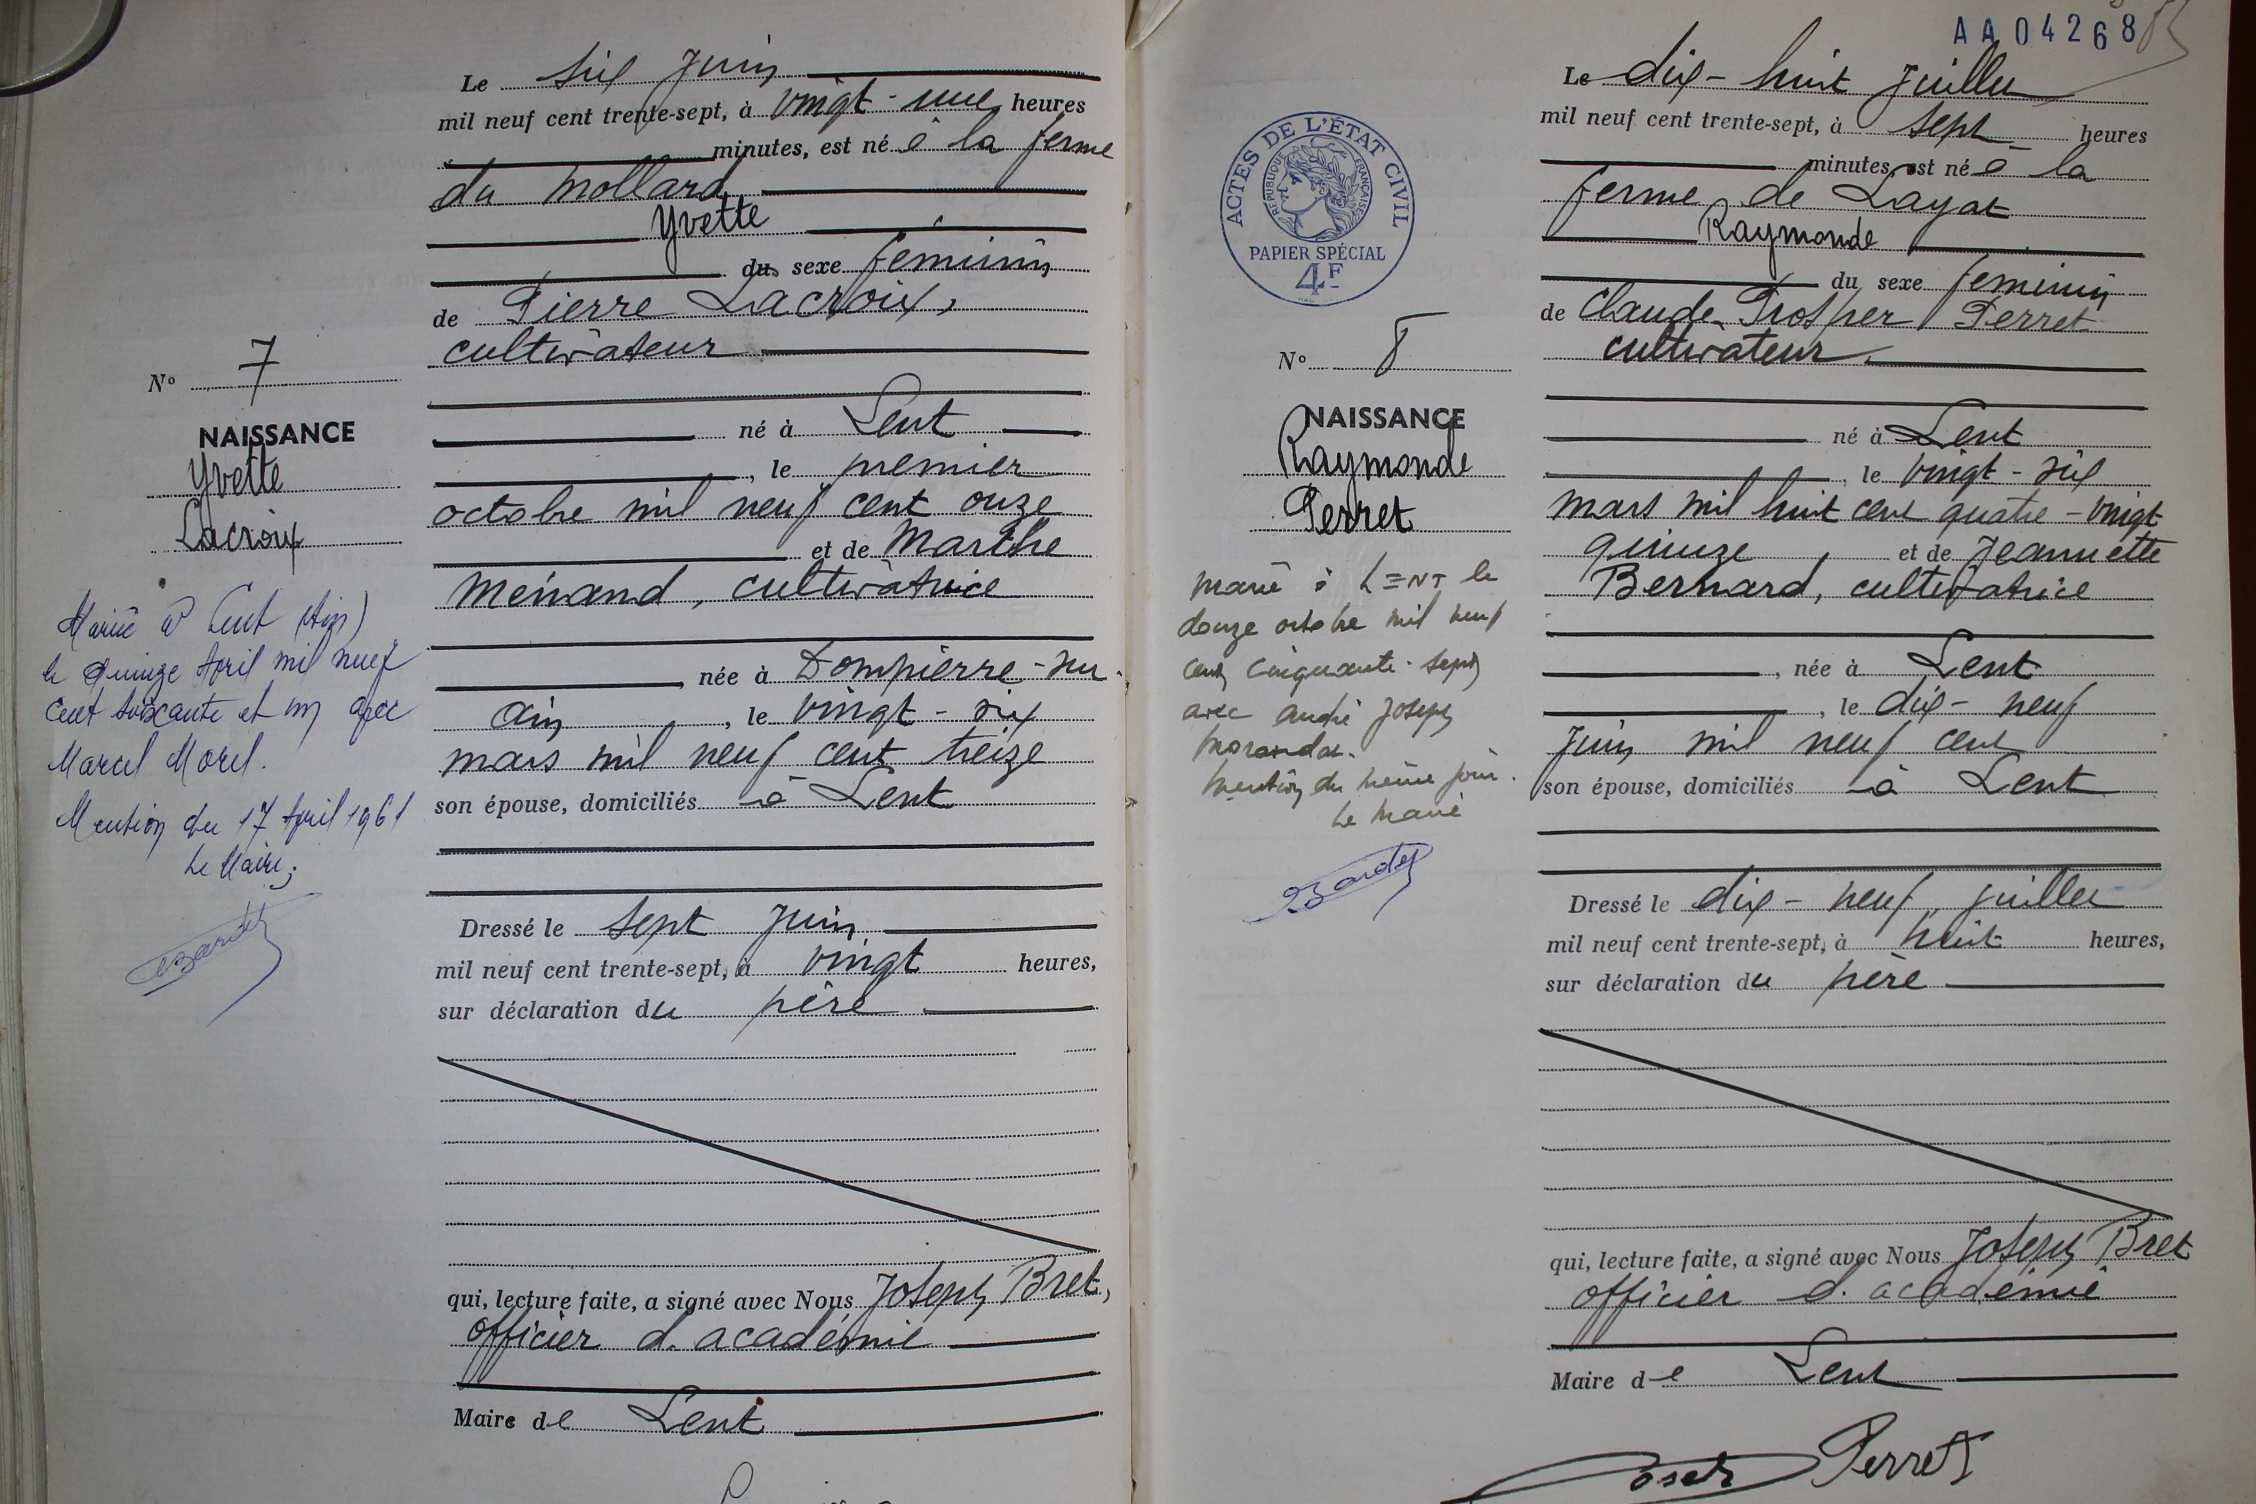 Le six juin
mil neuf cent trente-sept, à vingt-une heures
minutes, est né à la ferme
du Mollard
Yvette
du sexe féminin
de Pierre Lacroix,
cultivateur
né à Lent
, le premier
octobre mil neuf cent onze
et de Marthe
Menand, cultivatrice
, née à Dompierre-sur-
Ain, le vingt-six
mars mil neuf cent treize
son épouse, domiciliés à Lent
Dressé le sept juin
mil neuf cent trente-sept, à vingt heures,
sur déclaration du père
qui, lecture faite, a signé avec Nous Joseph Bret,
officier d'académie
Maire de Lent
N° 7
NAISSANCE
Yvette
Lacroix
Mariée à Lent (Ain)
le quinze Avril mil neuf
cent soixante et un avec
Marcel Morel.
Mention du 17 Avril 1961
Le Maire,
AA04268
Le dix-huit juillet
mil neuf cent trente-sept, à sept heures
minutes, est né à la
ferme de Layat
Raymonde
du sexe feminin
de Claude Prosper Perret
cultivateur
né à Lent
, le vingt-six
mars mil huit cent quatre-vingt
quinze, et de Jeannette
Bernard, cultivatrice
, née à Lent
, le dix-neuf
juin mil neuf cent
son épouse, domiciliés à Lent
Dressé le dix-neuf juillet
mil neuf cent trente-sept, à huit heures,
sur déclaration du père
qui, lecture faite, a signé avec Nous Joseph Bret
officier d'académie
Maire de Lent
Perret
ACTES DE L'ÉTAT CIVIL
RÉPUBLIQUE FRANÇAISE
PAPIER SPÉCIAL
4F
N° 8
NAISSANCE
Raymonde
Perret
Mariée à LENT le
douze octobre mil neuf
cent cinquante-sept
avec André Joseph
Mention du même jour.
Le Maire